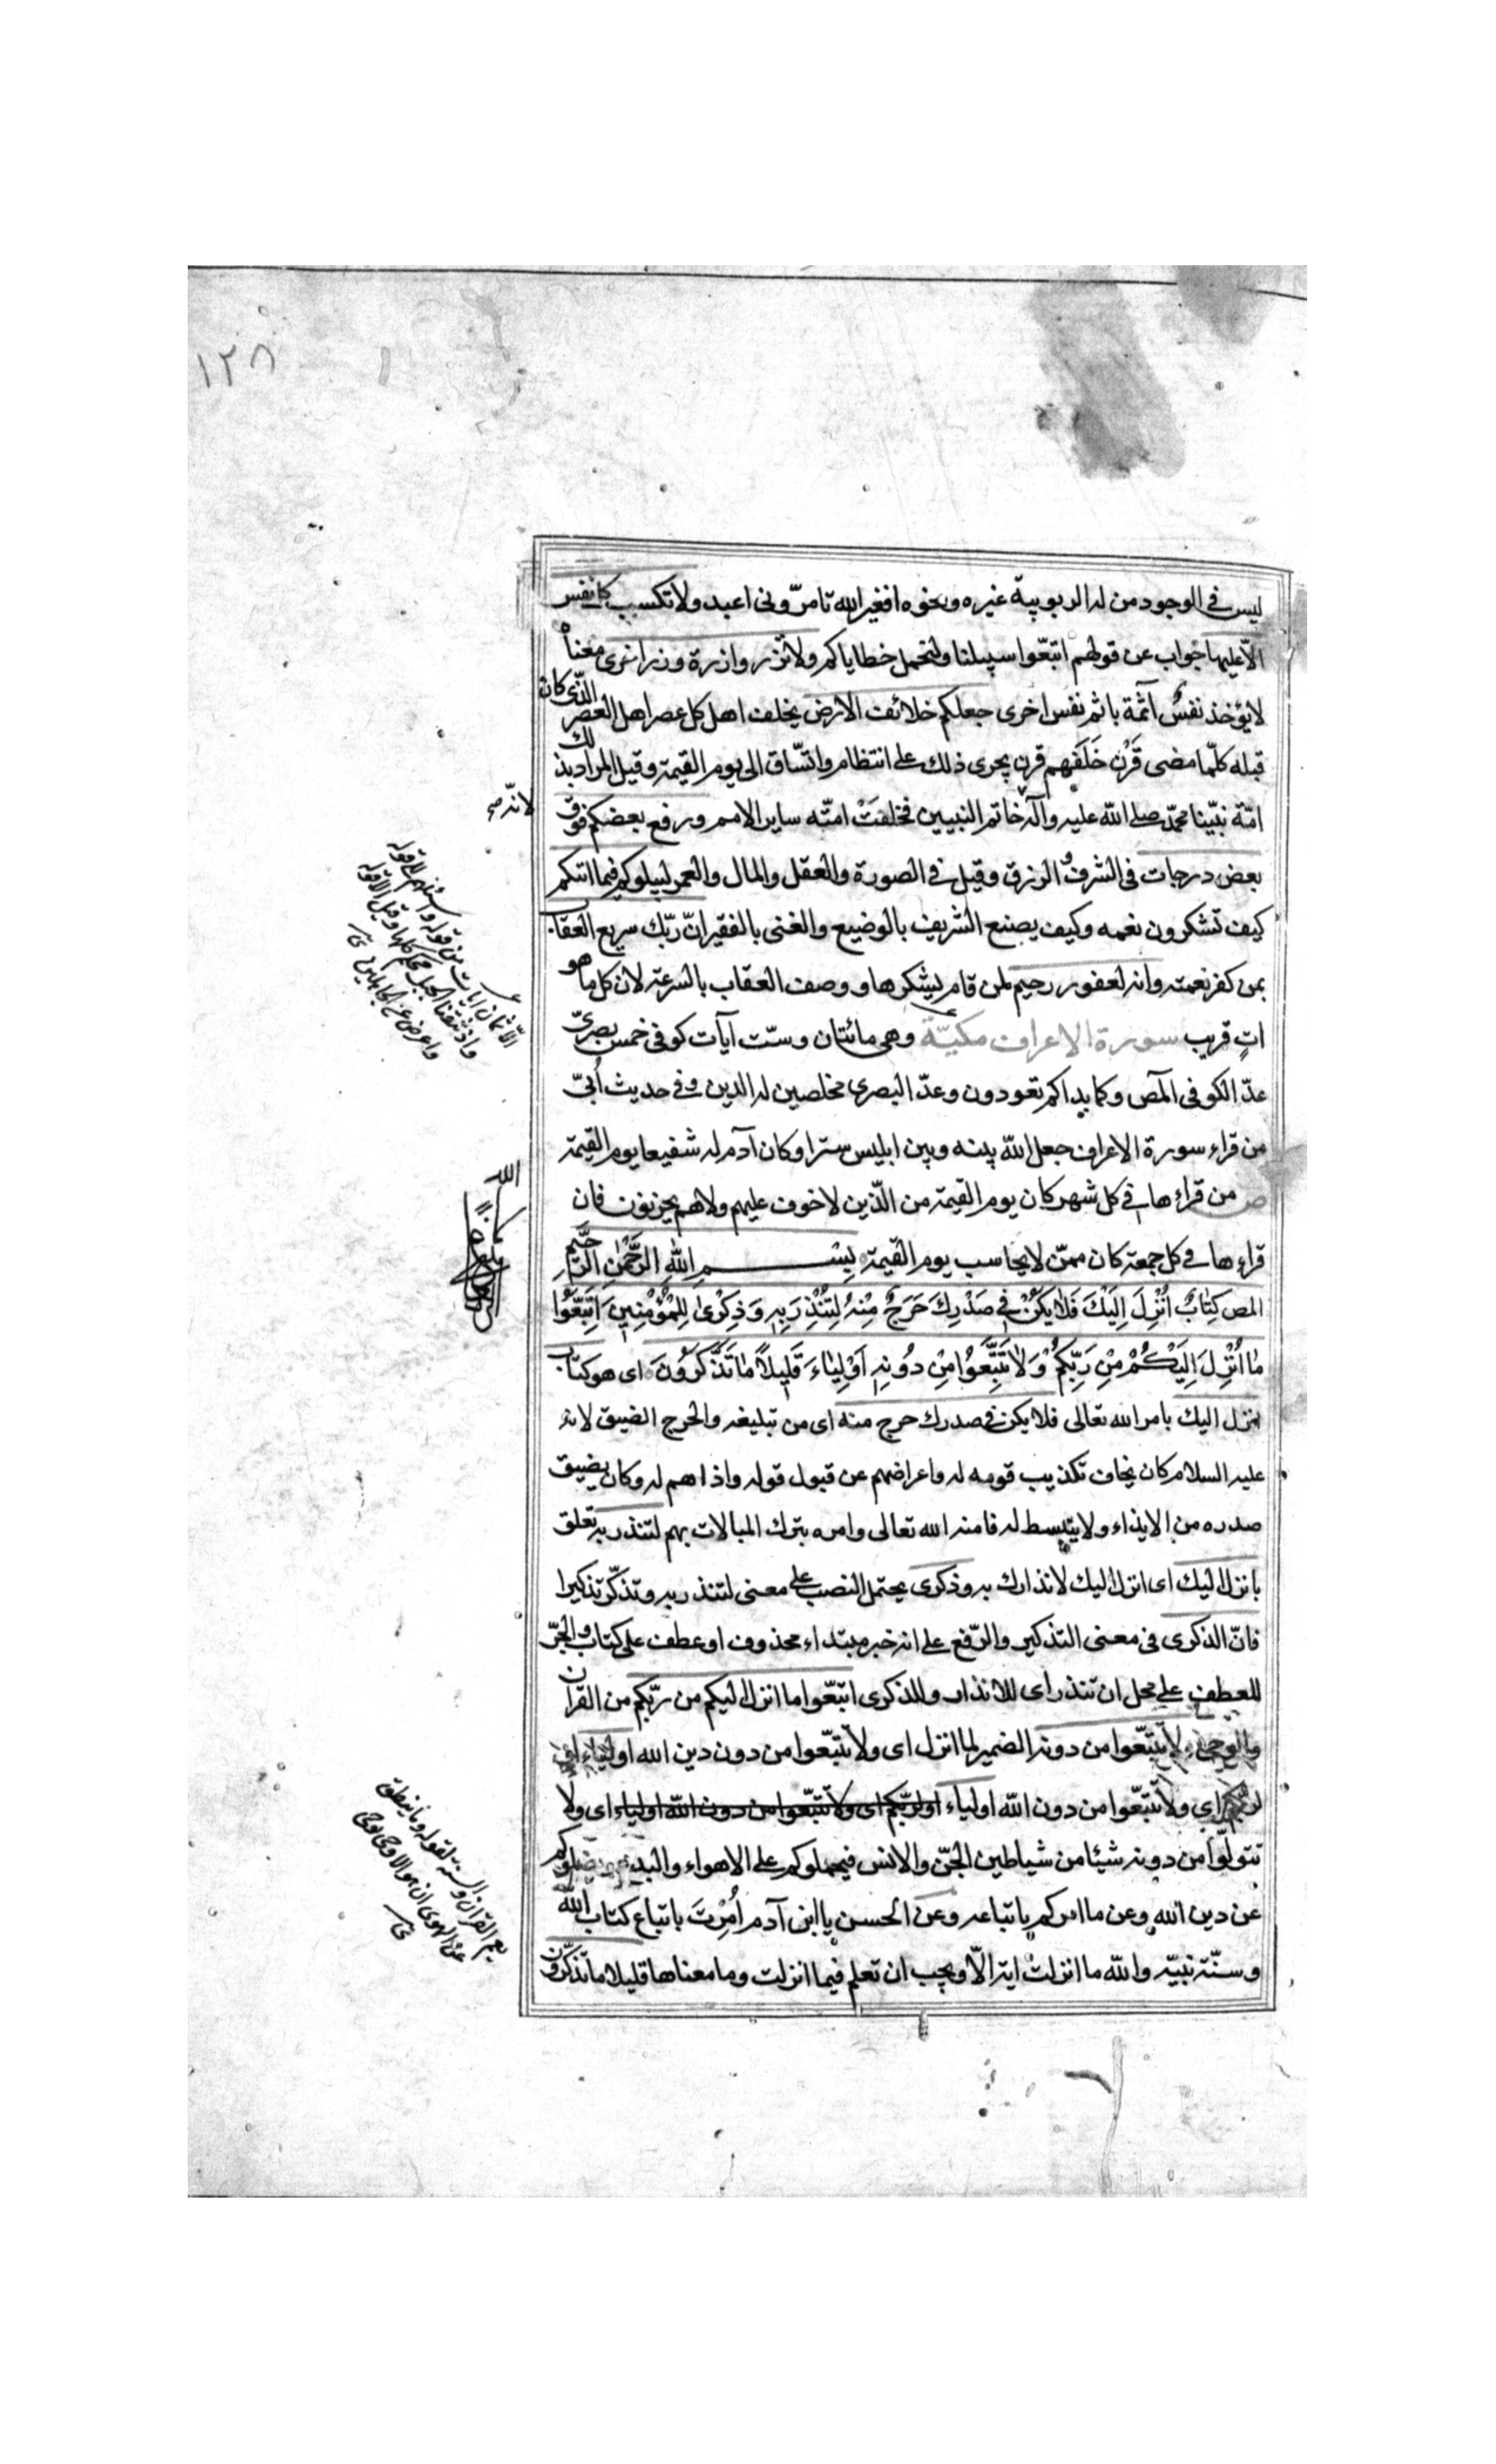 ١٢٨
ليس في الوجود من له الربوبية غيره ونحوه افغير الله تامرّونى اعبد ولا تكسب كل نفس
الّا عليها جواب عن قولهم اتبعّوا سبيلنا ولنحمل خطاياكم ولا تزر وازرة وزر اخرى معناه
لا يؤخذ نفسٌ آثمة باثم نفس اخرى جعلكم خلائف الارض يخلف اهل كل عصر اهل العصر الّذى كان
قبله كلّما مضى قَرْن خَلَفهم قرن يجرى ذلك على انتظام واتّساق الى يوم القيمة وقيل المراد بذلك
امّة نبيّنا محمّد صلى الله عليه وآله خاتم النبيين فخلفَتْ امتّه ساير الامم ورفع بعضكم فوق
لانّه صح
بعض درجات فى الشرف والرزق وقيل في الصورة والعقل والمال والعمر ليبلوكم فيما اتيكم
كيف تشكرون نعمه وكيف يصنع الشريف بالوضيع والغنى بالفقير انّ ربّك سريع العقاب
بمن كفر نعمته وانه لغفور رحيم لمن قام بشكرها ووصف العقاب بالسرعة لان كل ما هو
اتٍ قريب سورة الاعراف مكيّة وهى مائتان وستّ آيات كوفى خمس بصرىّ
الّا ثمان ايات من قوله واسئلهم الى قوله
واذ نتقنا الجبل محكم كلها وقيل الا قوله
واعرض عن الجاهلين
عدّ الكوفى المص وكما بداكم تعودون وعدّ البصرى مخلصين له الدين وفي حديث اُبىّ
من قراء سورة الاعراف جعل الله بينه وبين ابليس سترا وكان آدم له شفيعا يوم القيمة
ص من قراءها في كل شهر كان يوم القيمة من الّذين لا خوف عليهم ولا هم يحزنون فان
قراءها في كل جمعة كان ممّن لا يحاسب يوم القيمة بِسْمِ اللهِ الرَّحْمٰنِ الرَّحيمِ
المص كِتٰابٌ اُنْزِلَ اِلَيْكَ فَلٰا يَكُنْ في صَدْرِكَ حَرَجٌ مِنْهُ لِتُنْذِرَ بِهِ وَذِكْرىٰ لِلْمُؤْمِنينَ اِتَّبِعُوا
مٰا اُنْزِلَ اِلَيْكُمْ مِنْ رَبِّكُمْ وَلٰا تَتَّبِعُوا مِنْ دُونِهِ اَوْلِيٰاءَ قَليلاً مٰا تَذَكَّرُونَ اى هو كتاب
انزل اليك بامر الله تعالى فلا يكن في صدرك حرج منه اى من تبليغه والحرج الضيق لانه
عليه السلام كان يخاف تكذيب قومه له واعراضهم عن قبول قوله واذاهم له وكان يضيق
صدره من الايذاء ولا ينبسط له فامنه الله تعالى وامره بترك المبالات بهم لتنذر به تعلق
بانزل اليك اى انزل اليك لانذارك به وذكرى يحتمل النصب على معنى لتنذر به وتذكّر تذكيرا
فانّ الذكرى فى معنى التذكير والرّفع على انه خبر مبتداء محذوف او عطف على كتاب والجرّ
للعطف على محل ان تنذر اى للانذار وللذكرى اتبعّوا ما انزل اليكم من ربّكم من القران
والوحى ولا تتبعّوا من دونه الضمير لما انزل اى ولا تتبعّوا من دون دين الله اولياء او
لربكم اي ولا تتبعّوا من دون الله اولياء او لربّكم اى ولا تتبعّوا من دون الله اولياء اى ولا
يعم القرآن والسنة لقوله وما ينطق
عن الهوى ان هو الا وحى يوحى
تتولّوا من دونه شيئا من شياطين الجنّ والانس فيحملوكم على الاهواء والبدع ويضلوكم
عن دين الله وعن ما امركم باتباعه وعن الحسن يا ابن آدم اُمِرْتَ باتباع كتاب الله
وسنّة نبيّه والله ما انزلت اية الّا ويجب ان تعلم فيما انزلت وما معناها قليلا ما تذكّرون